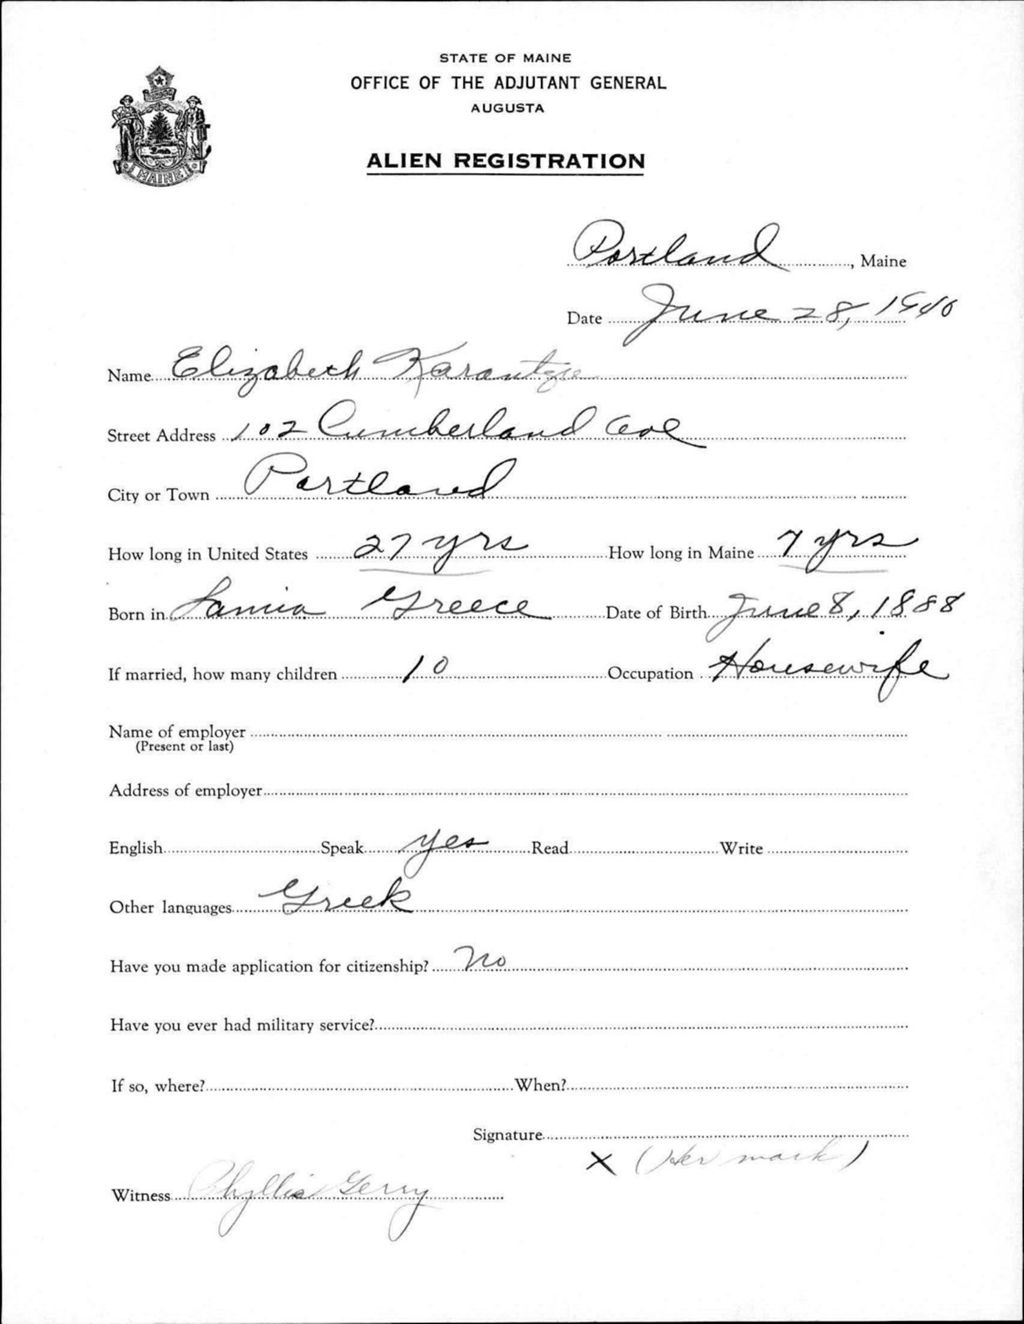 STATE OF MAINE
OFFICE OF THE ADJUTANT GENERAL
AUGUSTA
ALIEN REGISTRATION
MAINE
Portland, Maine
Date June 28, 1940
Name Elizabeth Karantzie
Street Address 102 Cumberland Ave
City or Town Portland
How long in United States 27 yrs How long in Maine 7 yrs
Born in Lamia Greece Date of Birth June 8, 1888
If married, how many children 10 Occupation Housewife
Name of employer
(Present or last)
Address of employer
English Speak yes Read Write
Other languages Greek
Have you made application for citizenship? No
Have you ever had military service?
If so, where? When?
Signature
X (Her mark)
Witness Phyllis Gerry